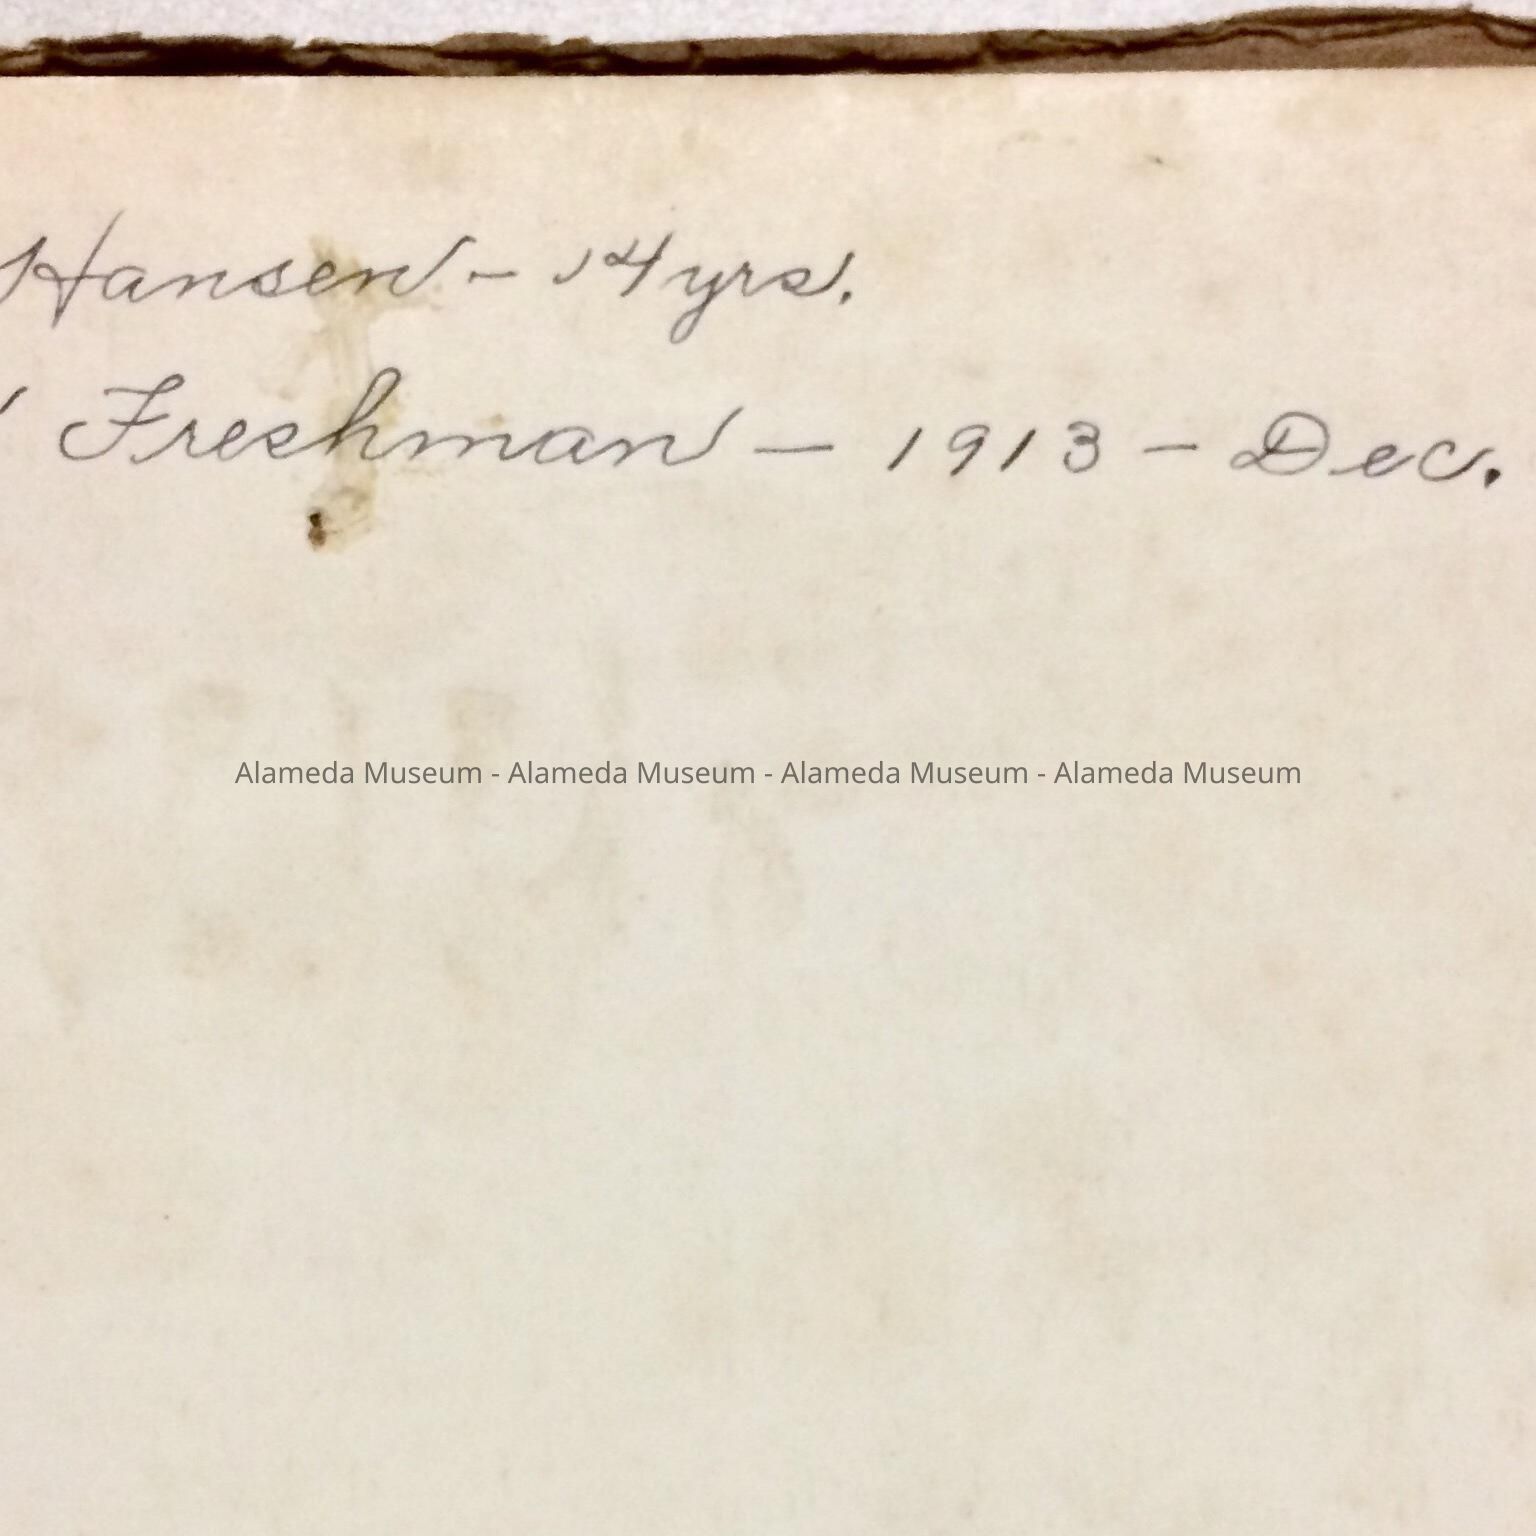 Hansen - 14 yrs.
Freshman — 1913 - Dec.
Alameda Museum - Alameda Museum - Alameda Museum - Alameda Museum